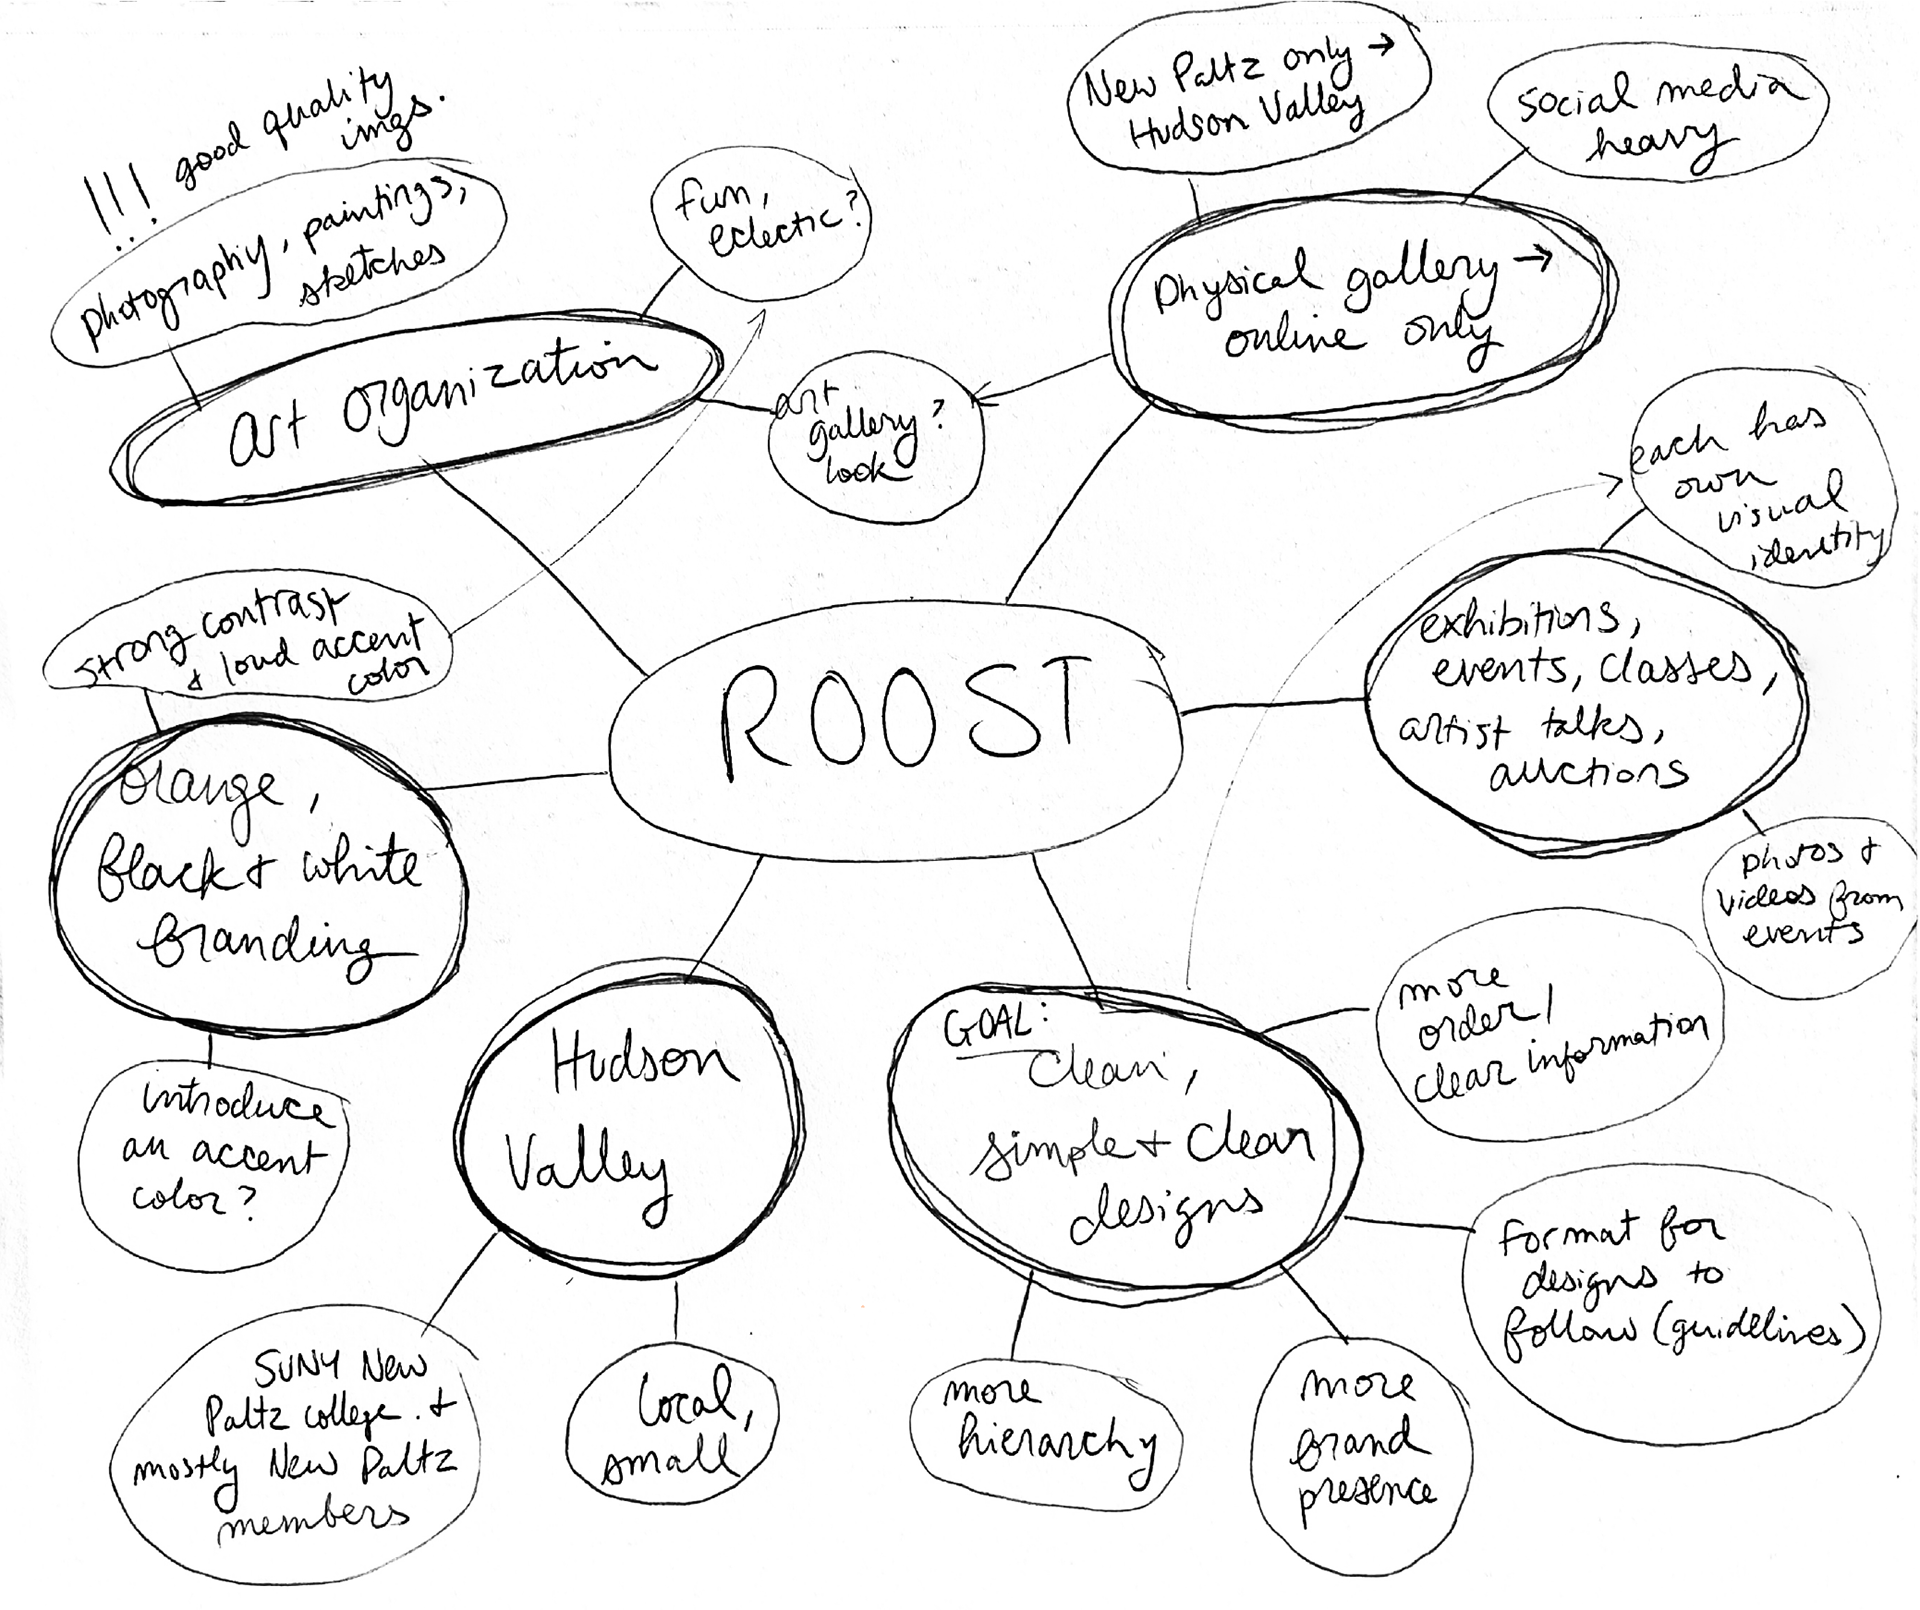 !!! good quality
imgs.
photography, paintings,
sketches
fun,
eclectic?
art organization
art
gallery?
look
New Paltz only →
Hudson Valley
social media
heavy
Physical gallery →
online only
each has
own
visual
identity
exhibitions,
events, classes,
artist talks,
auctions
photos +
videos from
events
strong contrast
+ loud accent
color
ROOST
orange,
black + white
branding
introduce
an accent
color?
Hudson
Valley
SUNY New
Paltz college. +
mostly New Paltz
members
local,
small
GOAL:
Clean,
simple + clear
designs
more
order/
clear information
format for
designs to
follow (guidelines)
more
hierarchy
more
brand
presence